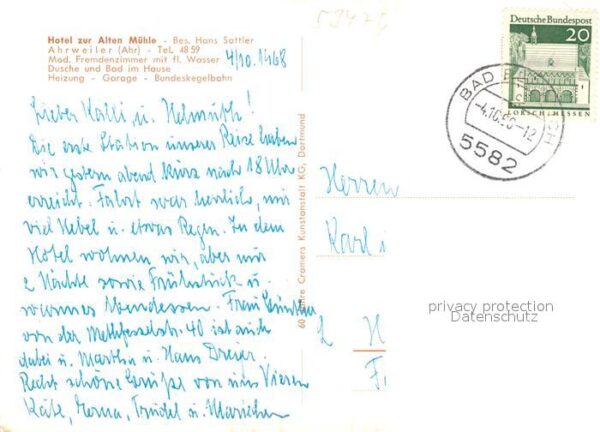 Hotel zur Alten Mühle - Bes. Hans Sattler
Ahrweiler (Ahr) - Tel. 48 59
Mod. Fremdenzimmer mit fl. Wasser
Dusche und Bad im Hause
Heizung - Garage - Bundeskegelbahn
4/10.1968
Lieber Kalli u. Helmuth!
Die erste Station unserer Reise haben
wir gestern abend kurz nach 18 Uhr
erreicht. Fahrt war herrlich, nur
viel Nebel u. etwas Regen. In dem
Hotel wohnen wir, aber nur
2 Nächte sowie Frühstück u.
warmes Abendessen. Frau
von der 40 ist auch
dabei u. Martha u. Hans Dreyer.
Recht schöne Grüße von uns Vieren
Käte, Erna, Trudel u. Mariechen
60 Jahre Cramers Kunstanstalt KG, Dortmund
Deutsche Bundespost
20
LORSCH/HESSEN
BAD
-4.10.68-12
5582
Herren
Karl
2 H
F
privacy protection
Datenschutz